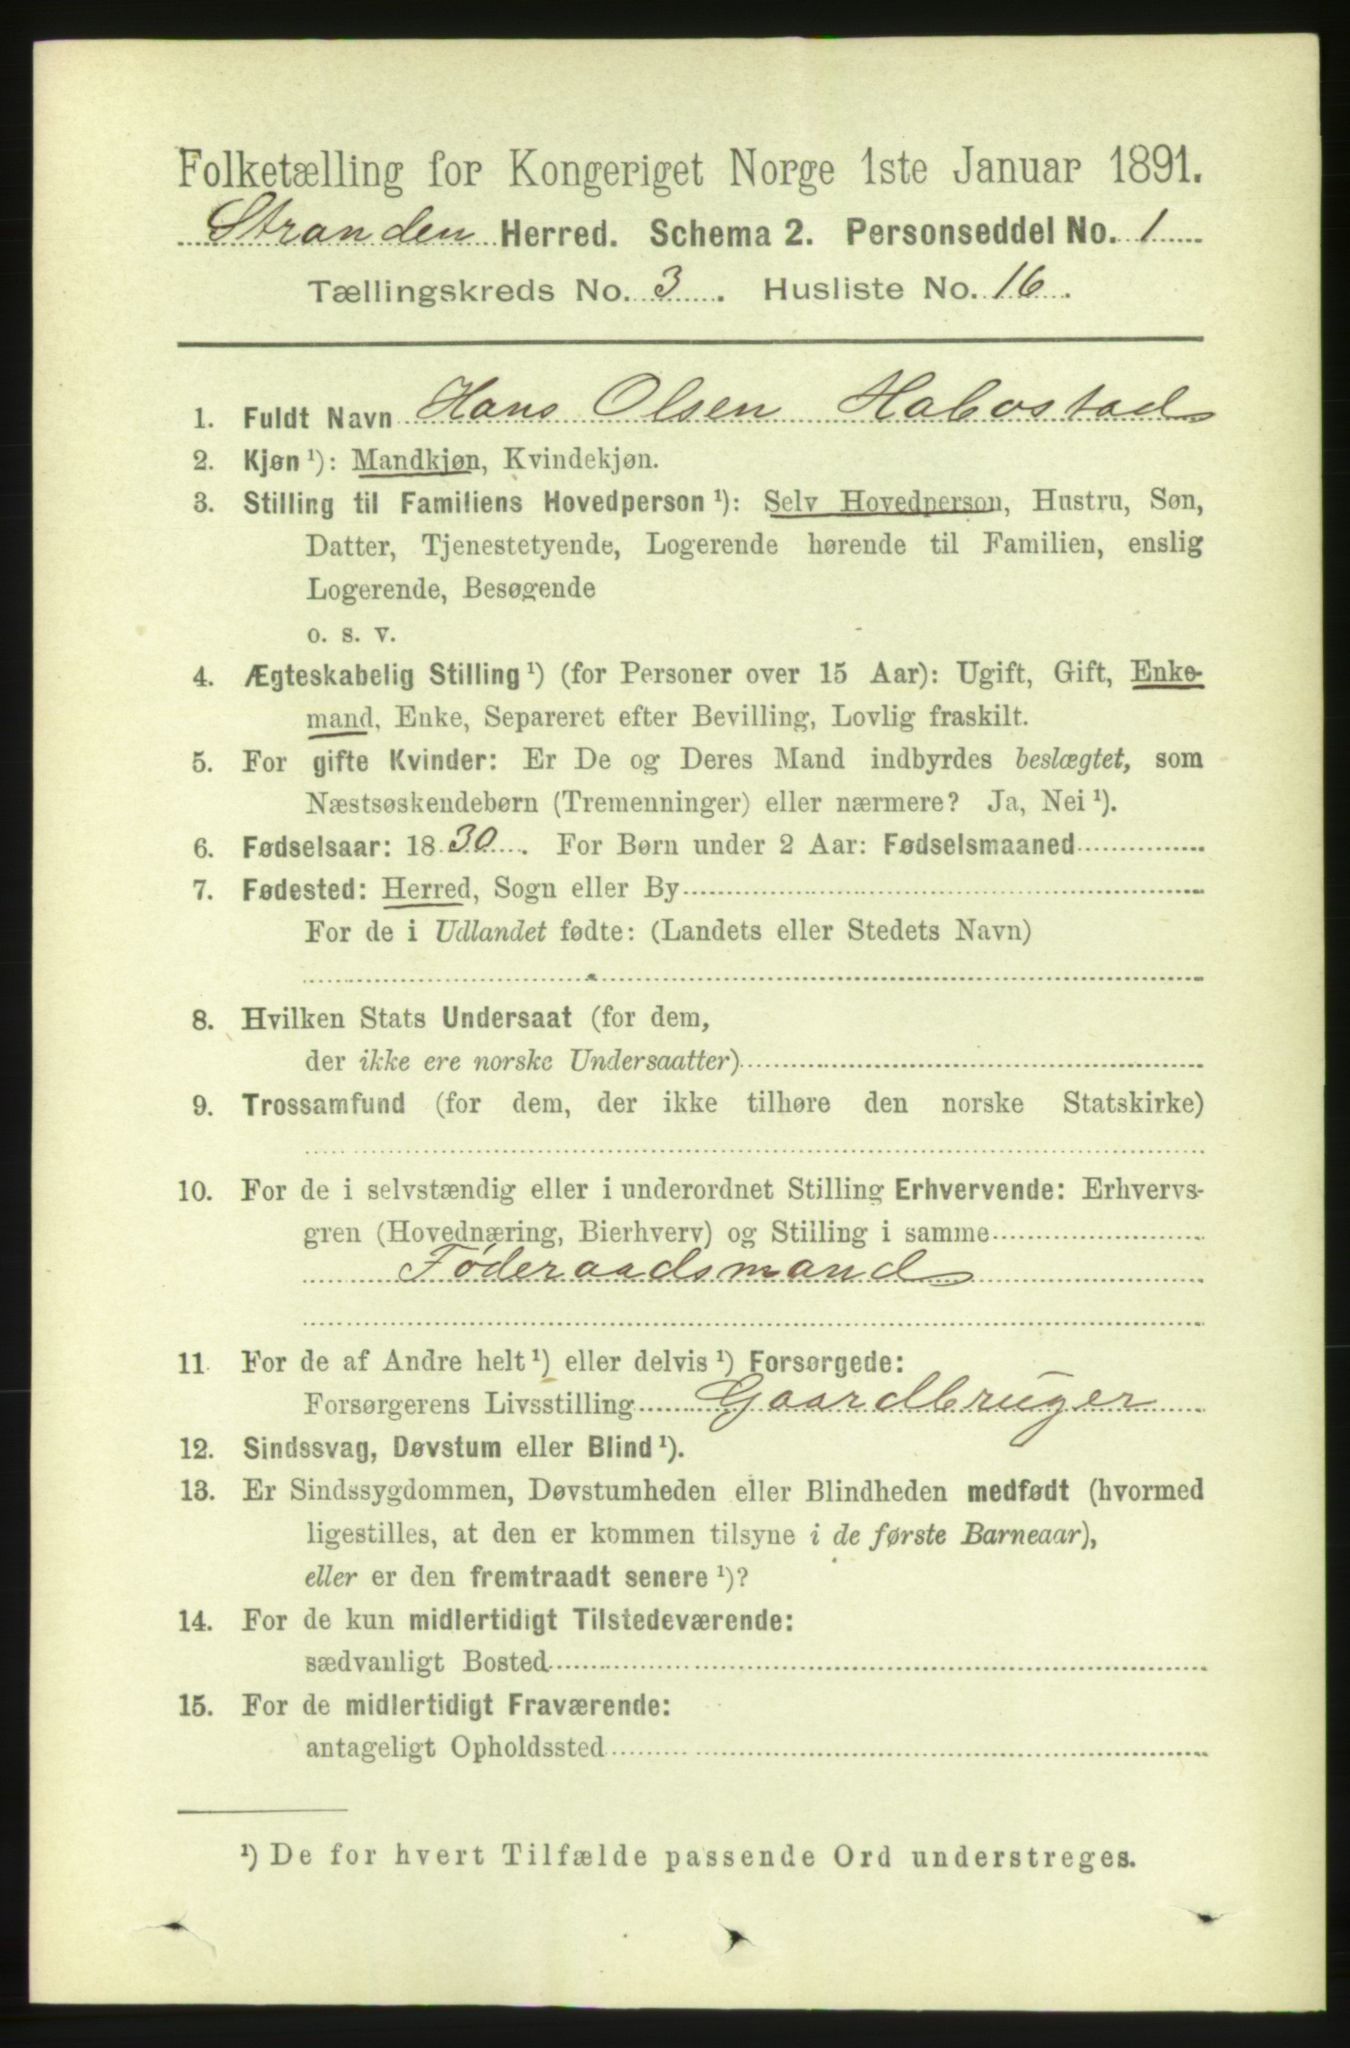 Folketælling for Kongeriget Norge 1ste Januar 1891.
Stranden Herred. Schema 2. Personseddel No. 1
Tællingskreds No. 3. Husliste No. 16.
1. Fuldt Navn Hans Olsen Habostad
2. Kjøn ¹): Mandkjøn, Kvindekjøn.
3. Stilling til Familiens Hovedperson ¹): Selv Hovedperson, Hustru, Søn,
Datter, Tjenestetyende, Logerende hørende til Familien, enslig
Logerende, Besøgende
o. s. v.
4. Ægteskabelig Stilling ¹) (for Personer over 15 Aar): Ugift, Gift, Enke-
mand, Enke, Separeret efter Bevilling, Lovlig fraskilt.
5. For gifte Kvinder: Er De og Deres Mand indbyrdes beslægtet, som
Næstsøskendebørn (Tremenninger) eller nærmere? Ja, Nei ¹).
6. Fødselsaar: 1830. For Børn under 2 Aar: Fødselsmaaned
7. Fødested: Herred, Sogn eller By
For de i Udlandet fødte: (Landets eller Stedets Navn)
8. Hvilken Stats Undersaat (for dem,
der ikke ere norske Undersaatter)
9. Trossamfund (for dem, der ikke tilhøre den norske Statskirke)
10. For de i selvstændig eller i underordnet Stilling Erhvervende: Erhvervs-
gren (Hovednæring, Bierhverv) og Stilling i samme
Føderaadsmand
11 For de af Andre helt ¹) eller delvis ¹) Forsørgede:
Forsørgerens Livsstilling Gaardbruger
12. Sindssvag, Døvstum eller Blind ¹).
13. Er Sindssygdommen, Døvstumheden eller Blindheden medfødt (hvormed
ligestilles, at den er kommen tilsyne i de første Barneaar),
eller er den fremtraadt senere ¹)?
14. For de kun midlertidigt Tilstedeværende:
sædvanligt Bosted
15. For de midlertidigt Fraværende:
antageligt Opholdssted
¹) De for hvert Tilfælde passende Ord understreges.